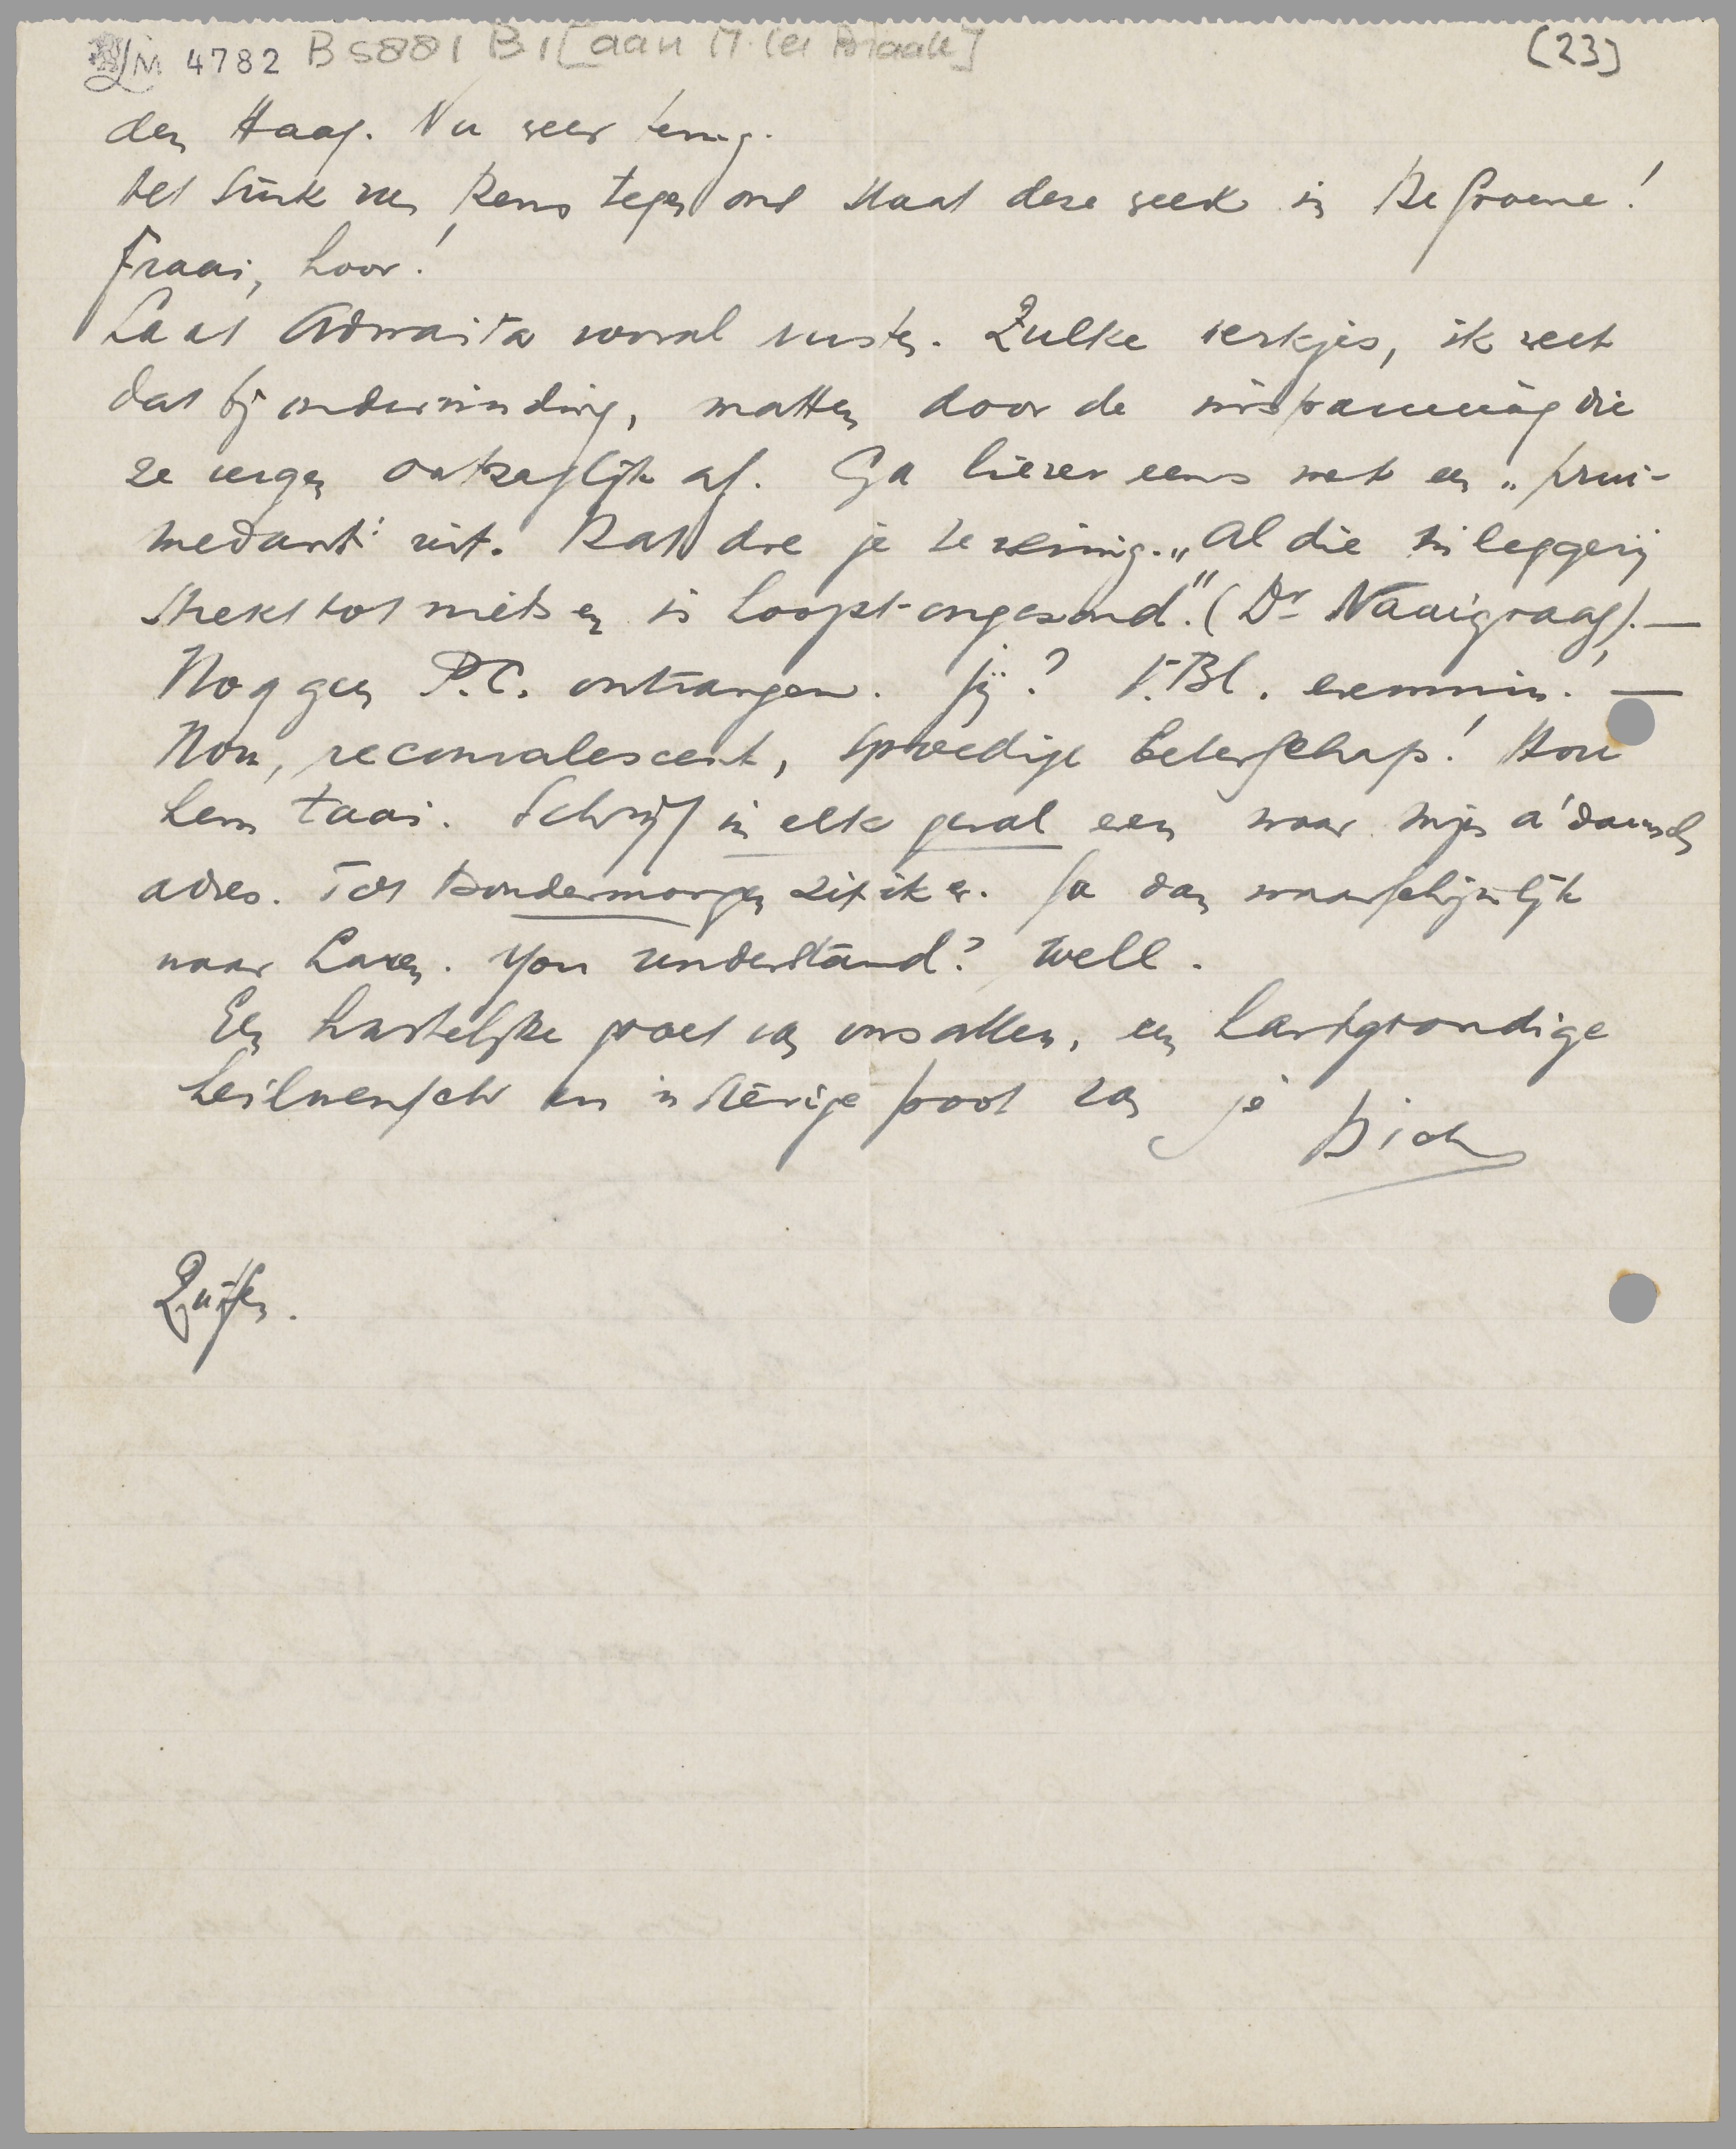 LM 4782 B 5881 B1 [aan M. ter Braak] (23)
den Haag. Nu weer terug.
Het stuk van Rens tegen ons staat deze week in De Groene!
Fraai, hoor!
Laat Adwaita vooral rusten. Zulke werkjes, ik weet
dat bij ondervinding, matten door de inspanning die
ze vergen ontzaglijk af. Ga liever eens met een „prui-
medant" uit. Dat doe je te weinig. „Al die in leggerij
strekt tot niets en is hoogst-ongezond." (Dr Naaigraag). —
Nog geen P.C. ontvangen. Jij? V. Bl. evenmin! —
Nou, reconvalescent, spoedige beterschap! Hou
hem taai. Schrijf in elk geval even naar mijn A'damsch
adres. Tot Dondermorgen zit ik er. Ga dan waarschijnlijk
naar Laren. You understand? Well.
Een hartelijke groet van ons allen, een hartgrondige
heilwensch en 'n stevige poot van je Dick
Zutfen.